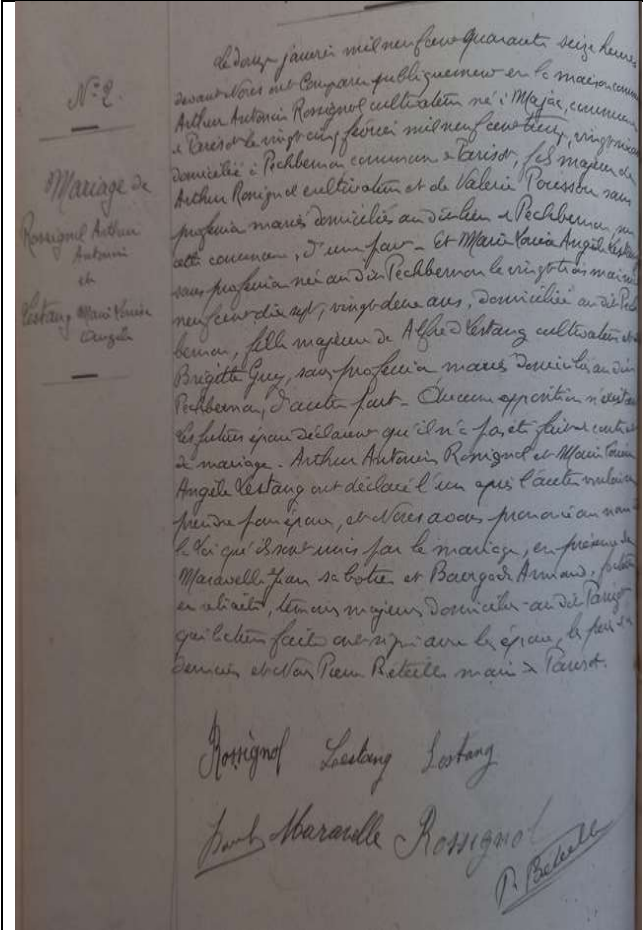 N° 2.
Mariage de
Rossignol Arthur
Antonin
et
Lestang Marie Louise
Angèle
Le douze janvier mil neuf cent quarante seize heures
devant Nous ont comparu publiquement en la maison commune
Arthur Antonin Rossignol cultivateur né à commune
de Parisot le vingt cinq février mil neuf cent
domicilié à Pechbernou commune de Parisot, fils majeur de
Arthur Rossignol cultivateur et de Valérie Pousson sans
profession mariés domiciliés au dit lieu de Pechbernou,
cette commune, d'une part - Et Marie Louise Angèle Lestang
sans profession née au dit Pechbernou le vingt trois mai mil
neuf cent dix sept, vingt deux ans, domiciliée au dit Pech
bernou, fille majeure de Alfred Lestang cultivateur et
Brigitte Guy, sans profession mariés domiciliés au dit
Pechbernou, d'autre part - Aucune opposition n'existant
Les futurs époux déclarent qu'il n'a pas été fait de contrat
de mariage. Arthur Antonin Rossignol et Marie Louise
Angèle Lestang ont déclaré l'un après l'autre vouloir
prendre pour époux, et Nous avons prononcé au nom de
la Loi qu'ils sont unis par le mariage, en présence de
Maravelle Jean sabotier et Armand,
en retraite, témoins majeurs domiciliés au dit Parisot
qui lecture faite ont signé avec les époux, le père
et Nous Pierre Béteille maire de Parisot.
Rossignol Lestang Lestang
Maravelle Rossignol
P. Béteille